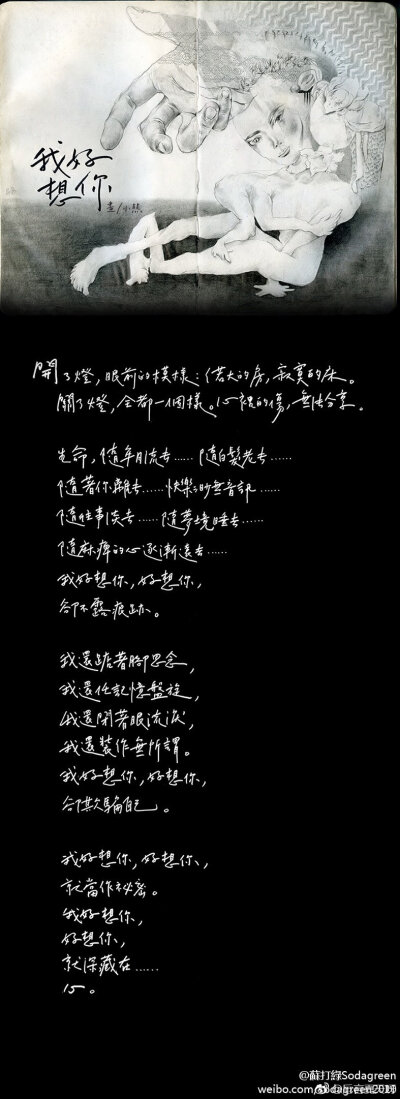 我好
想你
畫/小熊
開了燈,眼前的模樣:偌大的房,寂寞的床。
關了燈,全都一個樣。心裡的傷,無法分享。
生命,隨年月流去……隨白髮老去……
隨著你離去……快樂渺無音訊……
隨往事淡去……隨夢境睡去……
隨麻痺的心逐漸遠去……
我好想你,好想你,
卻不露痕跡。
我還踮著腳思念,
我還任記憶盤旋,
我還閉著眼流淚,
我還裝作無所謂。
我好想你,好想你,
卻欺騙自己。
我好想你,好想你,
就當作秘密。
我好想你,
好想你,
就深藏在……
心。
@蘇打綠Sodagreen
weibo.com/sodagreen2010